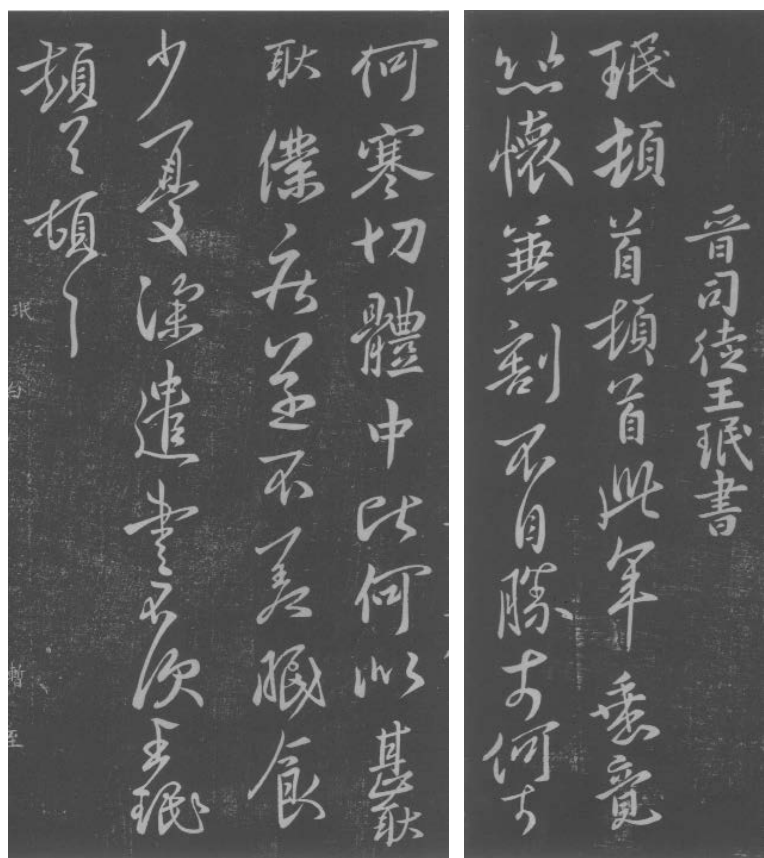 晉司徒王珉書
珉頓首頓首此年垂竟
懷兼割不自勝奈何奈
何寒切體中比何似甚耿
耿僕疾遂不差眠食
少憂深遣書不次王珉
頓首頓首